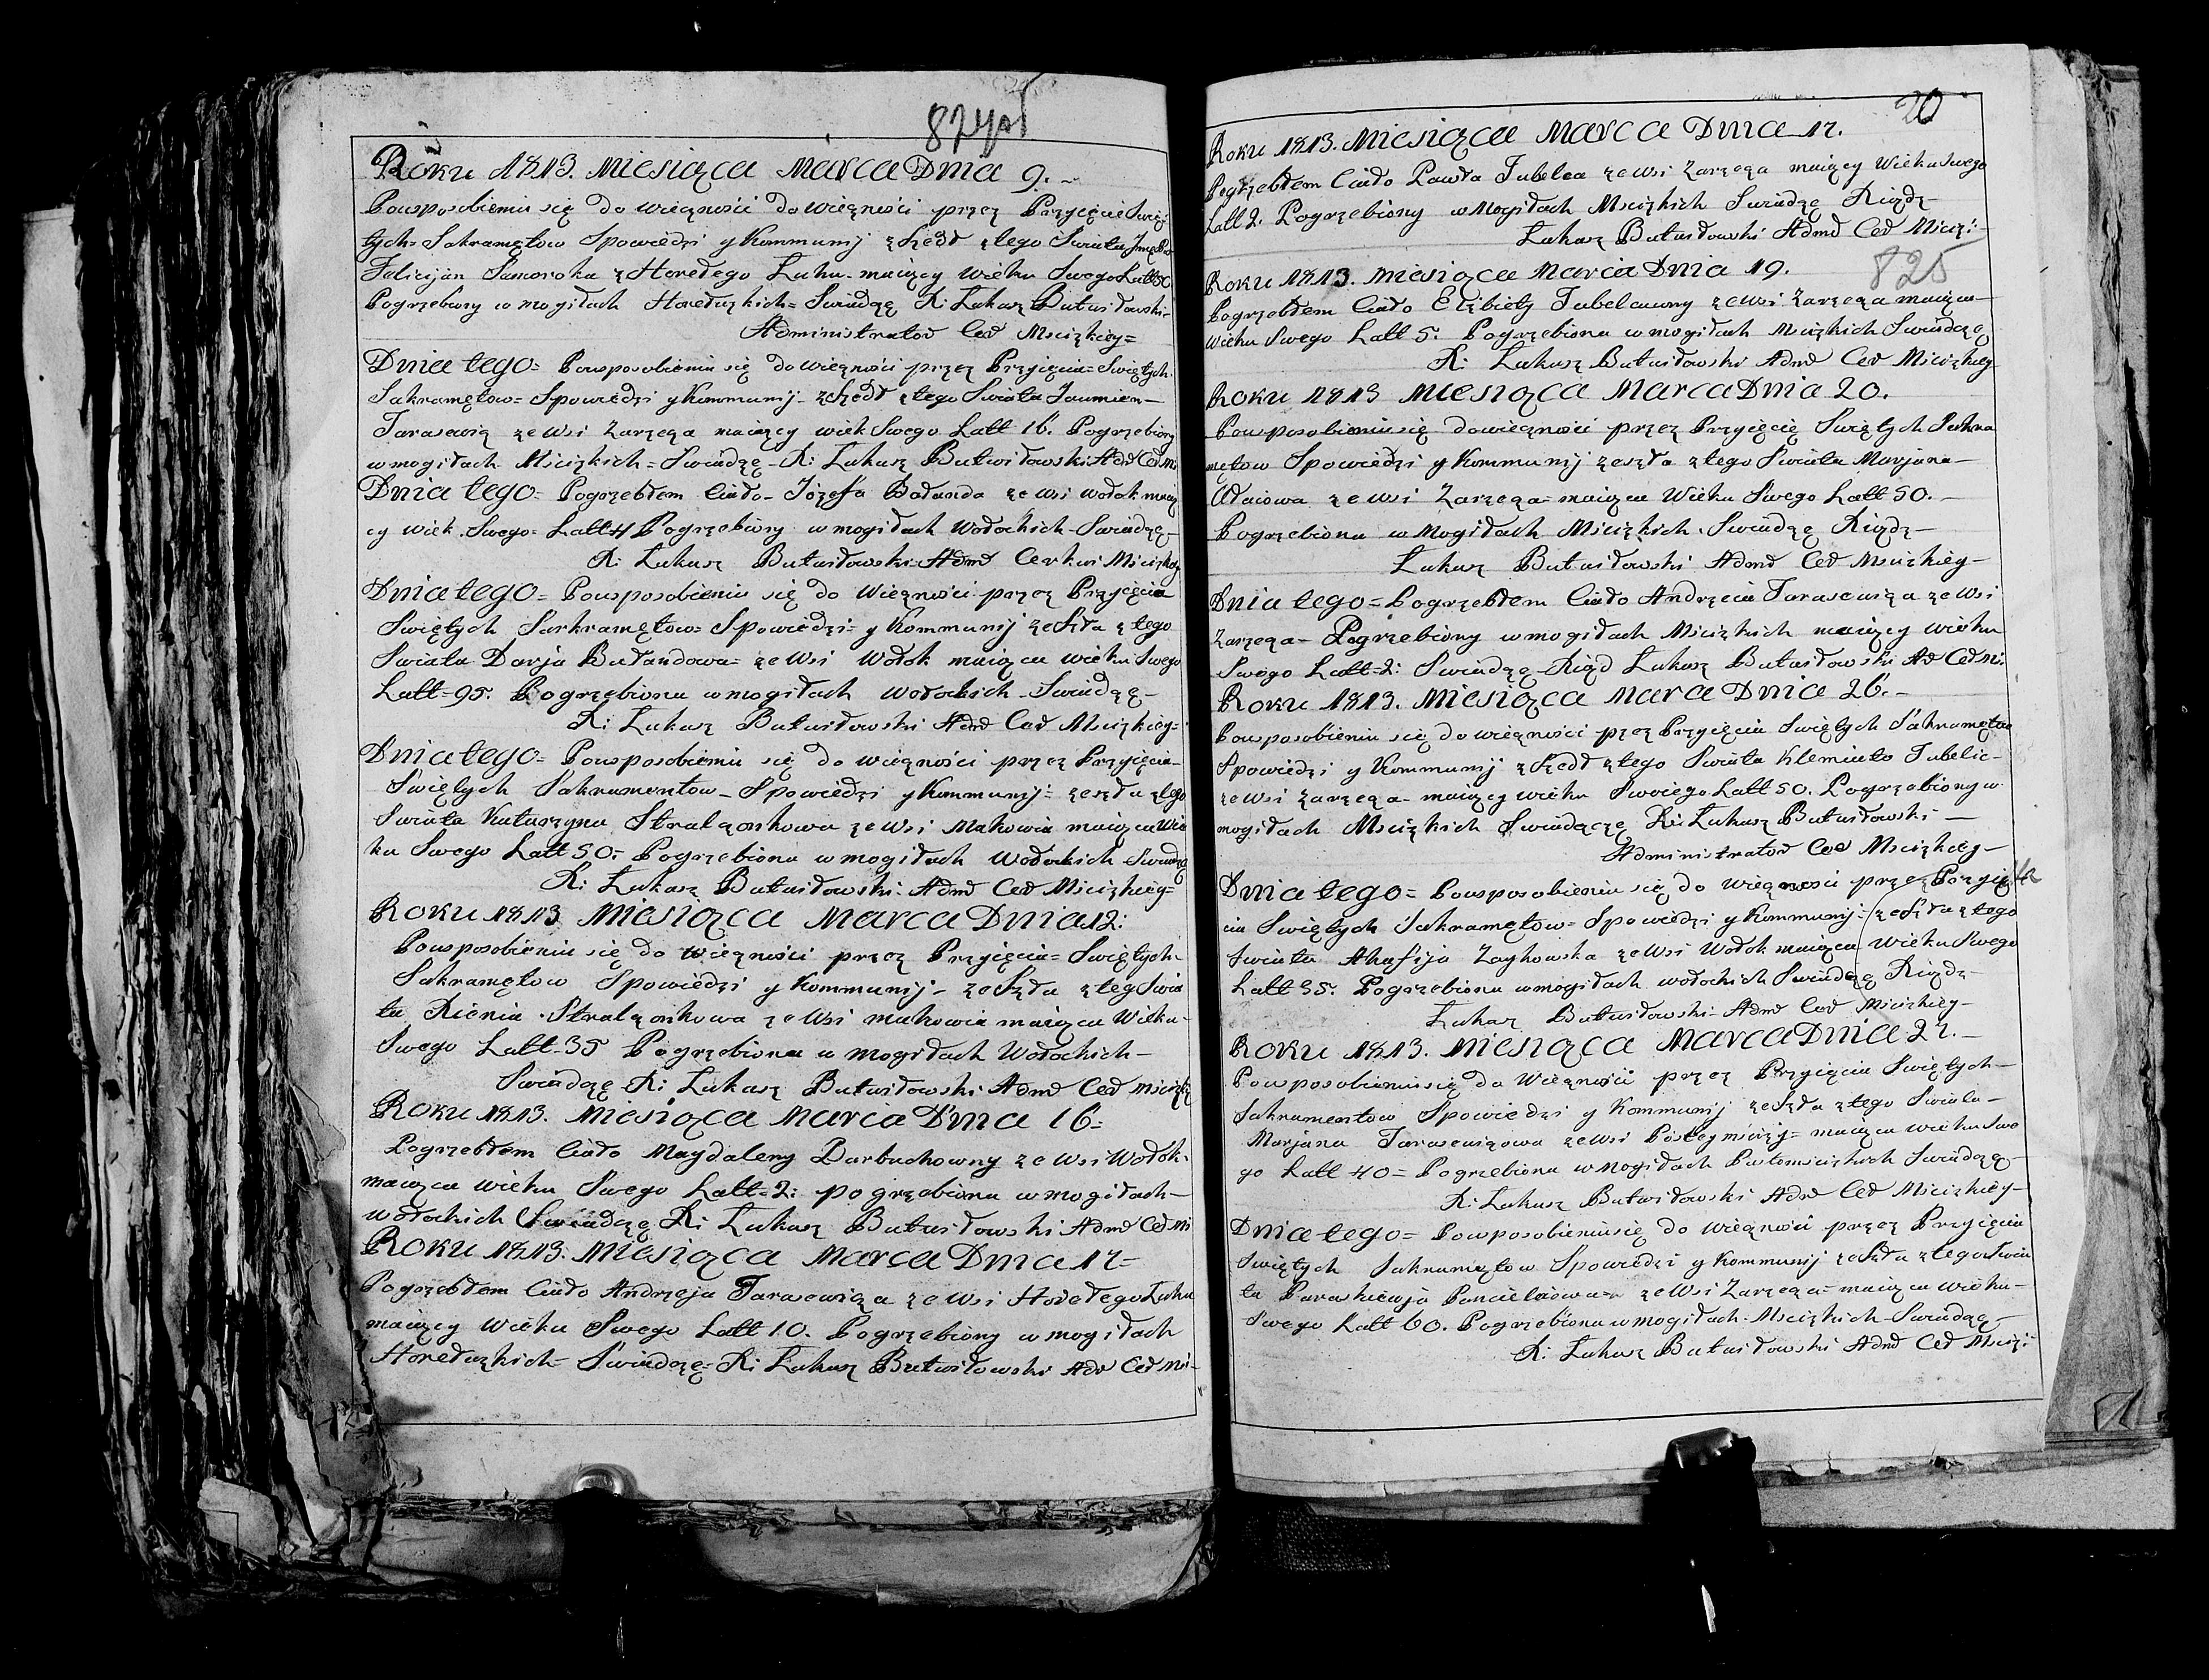 824
Roku 1813. Miesiąca Marca Dnia 9.
Pousposobieniu się do wiecznosci do wiecznosci przez Przyięcie Swię
tych Sakramętow Spowiedzi y Kommunij zszedł z tego Swiata
Felicijan Samoroka z Horełego Ługu maiący Wieku Swego Latt
Pogrzebiony w mogiłach Horełuzkich Swiadczę X: Łukasz Butwiłowski
Administrator Cer Mscizkiey
Dnia tego = Pousposobieniu się do wiecznosci przez Przyięcia Swiętych
Sakramętow = Spowiedzi y Kommunij zszedł z tego Swiata
Tarasewicz ze Wsi Zarzecza maiący wiek Swego Latt 16. Pogrzebiony
w mogiłach Mscizkich = Swiadczę X: Łukasz Butwiłowski Adm Cer M
Dnia tego = Pogrzebłem Ciało Józefa Bołanda ze Wsi Wołok maią
cy wiek Swego Latt 4 Pogrzebiony w mogiłach Wołockich Swiadczę
X: Łukasz Butwiłowski Adm Cerkwi Mscizkiey
Dnia tego = Pousposobieniu się do Wiecznosci przez Przyięcia
Swiętych Sarkramętow = Spowiedzi = y Kommunij zeszła z tego
Swiata Darja Butandowa = ze Wsi Wołok maiąca wieku Swego
Latt = 95. Pogrzebiona w mogiłach Wołockich Swiadczę
X: Łukasz Butwiłowski Adm Cer Mscizkiey =
Dnia tego = Pousposobieniu się do wiecznosci przez Przyięcia
Swiętych Sakramentow Spowiedzi y Kommunij = zeszła z tego
Swiata Katarzyna Stralczonkowa ze Wsi Makowia maiąca Wie
ku Swego Latt 50 = Pogrzebiona w mogiłach Wołockich Swiadczę
X: Łukasz Butwiłowski Adm Cer Mscizkiey =
Roku 1813 Miesiąca Marca Dnia 12:
Pousposobieniu się do wiecznosci przez Przyięcia = Swiętych
Sakramętow Spowiedzi y Kommunij zeszła z teg Swia
ta Xienia Stralczonkowa ze Wsi Makowia maiąca Wieku
Swego Latt 35 Pogrzebiona w mogiłach Wołockich
Swiadczę X: Łukasz Butwiłowski Adm Cer
Roku 1813. Miesiąca Marca Dnia 16 =
Pogrzebłem Ciało Magdaleny Darbuchowny ze Wsi Wołok
maiąca wieku Swego Latt = 2: pogrzebiona w mogiłach
Wołockich Swiadczę X: Łukasz Butwiłowski Adm Cer M
Roku 1813. Miesiąca Marca Dnia 17 =
Pogrzebłem Ciało Andrzeja Tarasewicza ze Wsi Horełego Ługu
maiący Wieku Swego Latt 10. Pogrzebiony w mogiłach
Horełuzkich = Swiadczę = X: Łukasz Butwiłowski Adm Cer M
20
Roku 1813. Miesiąca Marca Dnia 17.
Pogrzebłem Ciało Pawła Tubelca ze Wsi Zarzecza maiący Wieku Swego
Latt 2. Pogrzebiony w Mogiłach Mscizkich Swiadczę Xiądz
Łukasz Butwiłowski Adm Cer Mscizi
825
Roku 1813. Miesiąca Marca Dnia 19.
Pogrzebłem Ciało Elżbiety Tubelcowny ze Wsi Zarzecza maiąca
wieku Swego Latt 5. Pogrzebiona w mogiłach Mscizkich Swiadczę
X: Łukasz Butwiłowski Adm Cer Mscizkiey
Roku 1813 Miesiąca Marca Dnia 20.
Pousposobieniu się do wiecznosci przez Przyięcię Swiętych Sakra
mętow Spowiedzi y Kommunij zeszła z tego Swiata Marjana
ze Wsi Zarzecza = maiąca Wieku Swego Latt 50.
Pogrzebiona w Mogiłach Mscizkich Swiadczę Xiądz
Łukasz Butwiłowski Adm Cer Mscizkiey
Dnia tego = Pogrzebłem Ciało Andrzeia Tarasewicza ze Wsi
Zarzecza Pogrzebiony w mogiłach Mscizkich maiący wieku
Swego Latt = 2: Swiadczę Xiądz Łukasz Butwiłowski Ad Cer M.
Roku 1813. Miesiąca Marca Dnia 26.
Pousposobieniu się do wiecznosci przez Przyięcia Swiętych Sakramętow
Spowiedzi y Kommunij zszedł z tego Swiata Klemiato Tubelic
ze Wsi Zarzecza maiący wieku Swoiego Latt 50. Pogrzebiony w
mogiłach Mscizkich Swiadczę X: Łukasz Butwiłowski
Administrator Cer Mscizkiey
Dnia tego = Pousposobieniu się do wiecznosci przez Przyię
cia Swiętych Sakramętow = Spowiedzi y Kommunij = zeszła z tego
Swiata Ahafija Zaykowska ze Wsi Wołok maiąca wieku Swego
Latt 35. Pogrzebiona w mogiłach wołockich Swiadczę Xiądz
Łukasz Butwiłowski Adm Cer Mscizkiey
Roku 1813. Miesiąca Marca Dnia 27.
Pousposobieniu się do Wiecznosci przez Przyięcia Swiętych
Sakramentow Spowiedzi y Kommunij zeszła z tego Swiata
Marjana Tarasewiczowa ze Wsi = maiąca wieku Swo
go Latt 40 = Pogrzebiona w Mogiłach Swiadczę
X: Łukasz Butwiłowski Adm Cer Mscizkiey
Dnia tego = Pousposobieniu się do wiecznosci przez Przyięcia
Swiętych Sakramętow Spowiedzi y Kommunij zeszła z tego Swia
ta Paraskiewja ze Wsi Zarzecza = maiąca wieku
Swego Latt 60. Pogrzebiona w mogiłach Mscizkich Swiadczę
X: Łukasz Butwiłowski Adm Cer Mscizi